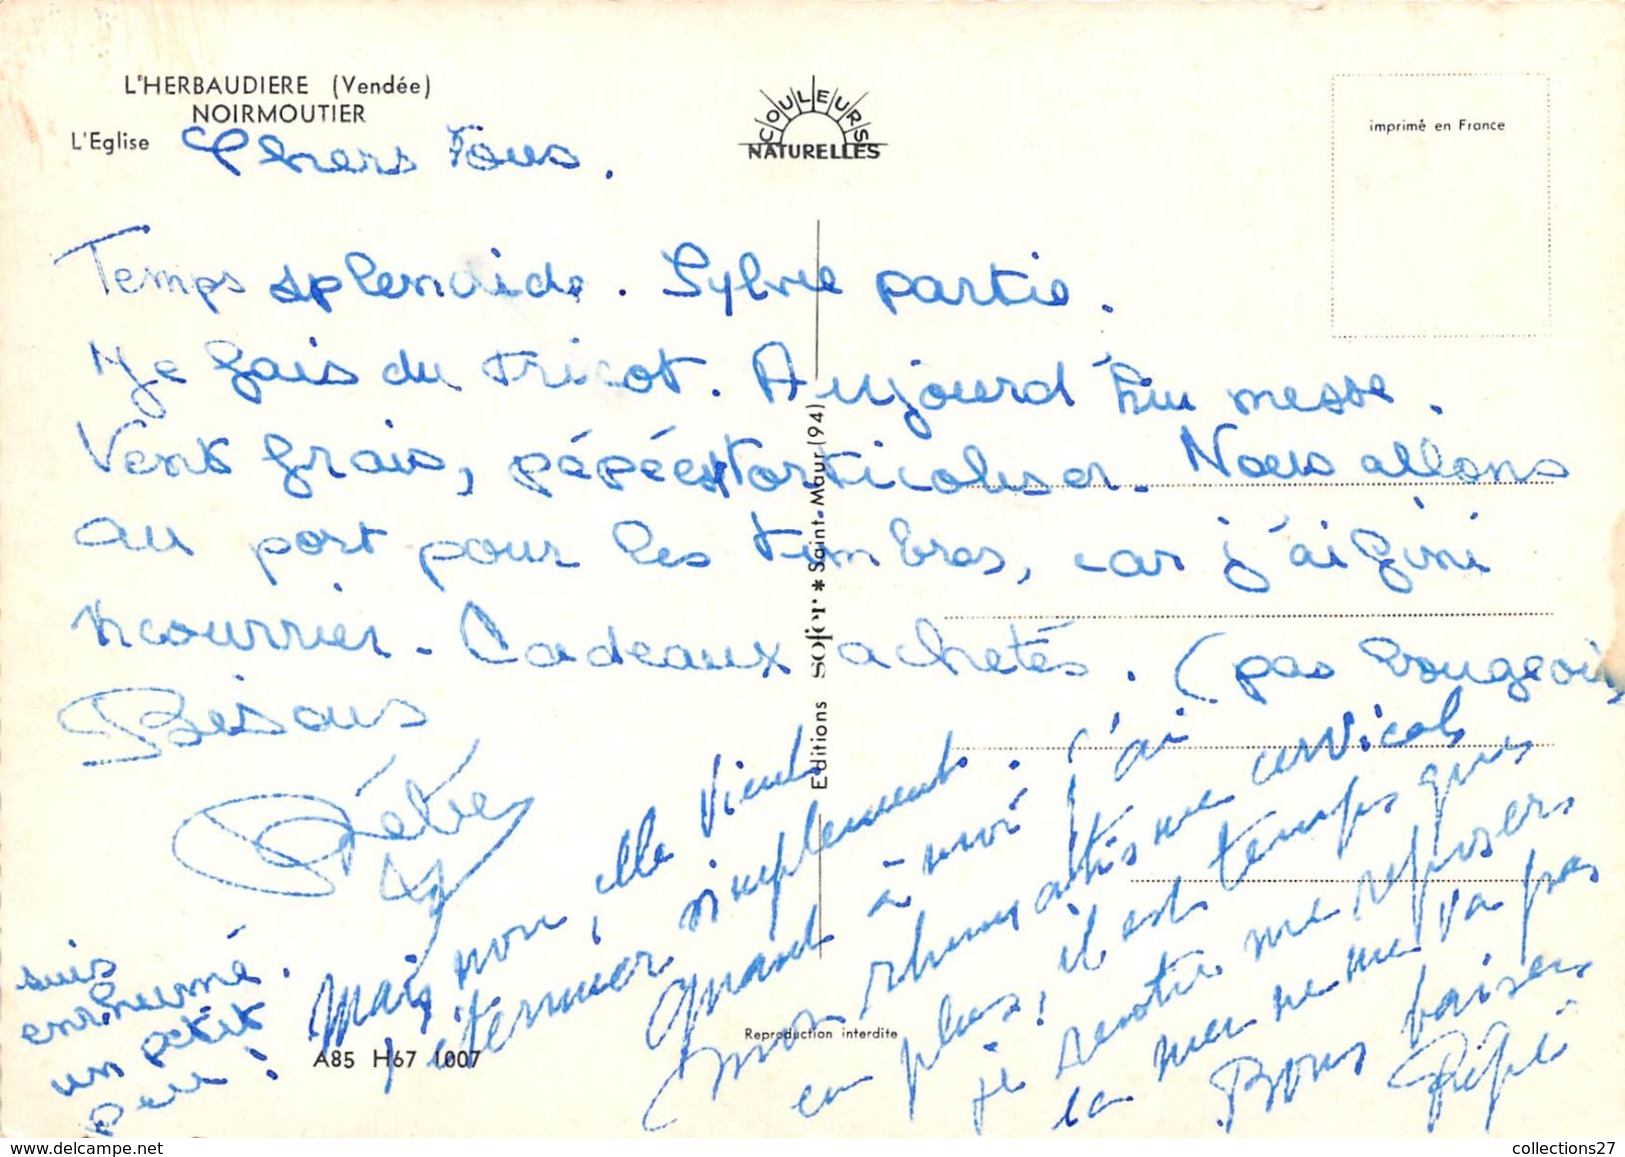 L'HERBAUDIERE (Vendée)
NOIRMOUTIER
L'Eglise
COULEURS
NATURELLES
imprimé en France
Chers Tous.
Temps splendide. Sylvie partie.
Je fais du tricot. Aujourd'hui messe.
Vent frais, pépé torticoliser. Nous allons
au port pour les timbres, car j'ai fini
courrier. Cadeaux achetés. (pas bougeoirs
Bisous
suis
enrhumé.
un petit
peu !
Mais non, elle vient
éternuer simplement.
Quand à moi j'ai
mon rhumatisme cervicale
en plus, il est temps que
je rentre me reposer
la mer ne me va pas
Bons baisers
Pépé
Editions sofer * Saint-Maur (94)
Reproduction interdite
A85 H67 1007
collections27